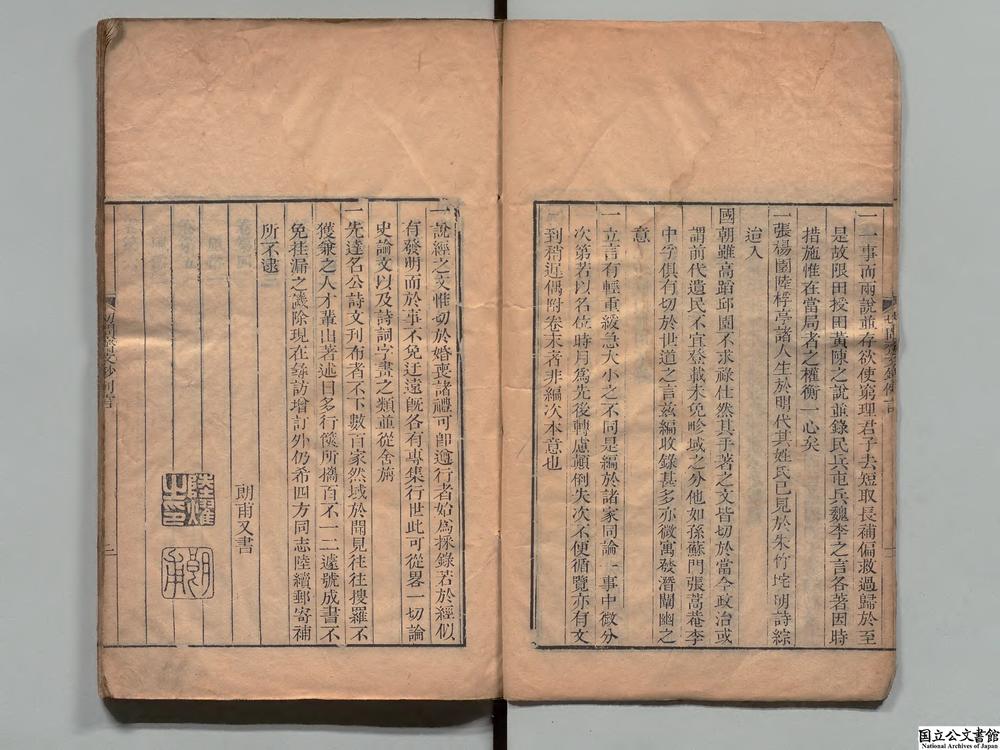 一一事而兩說並存欲使窮理君子去短取長補偏救過歸於至
是故限田授田黃陳之說並錄民兵屯兵魏李之言各著因時
措施惟在當局者之權衡一心矣
一張楊園陸桴亭諸人生於明代其姓氏已見於朱竹垞明詩綜
迨入
國朝雖高蹈邱園不求祿仕然其手著之文皆切於當今政治或
謂前代遺民不宜登載未免畛域之分他如孫蘇門張蒿菴李
中孚俱有切於世道之言茲編收錄甚多亦微寓發潛闡幽之
意
一立言有輕重緩急大小之不同是編於諸家同論一事中微分
次第若以名位時月為先後轉慮顛倒失次不便循覽亦有文
到稍近偶附卷末者非編次本意也
一說經之文惟切於婚喪諸禮可即遵行者始為採錄若於經似
有發明而於事不免迂遠既各有專集行世此可從畧一切論
史論文以及詩詞字畫之類並從舍旃
一先達名公詩文刊布者不下數百家然域於聞見往往搜羅不
獲兼之人才輩出著述日多行篋所攜百不一二遽號成書不
免挂漏之譏除現在採訪增訂外仍希四方同志陸續郵寄補
所不逮
朗甫又書
陸燿之印
朗甫
二
国立公文書館
National Archives of Japan